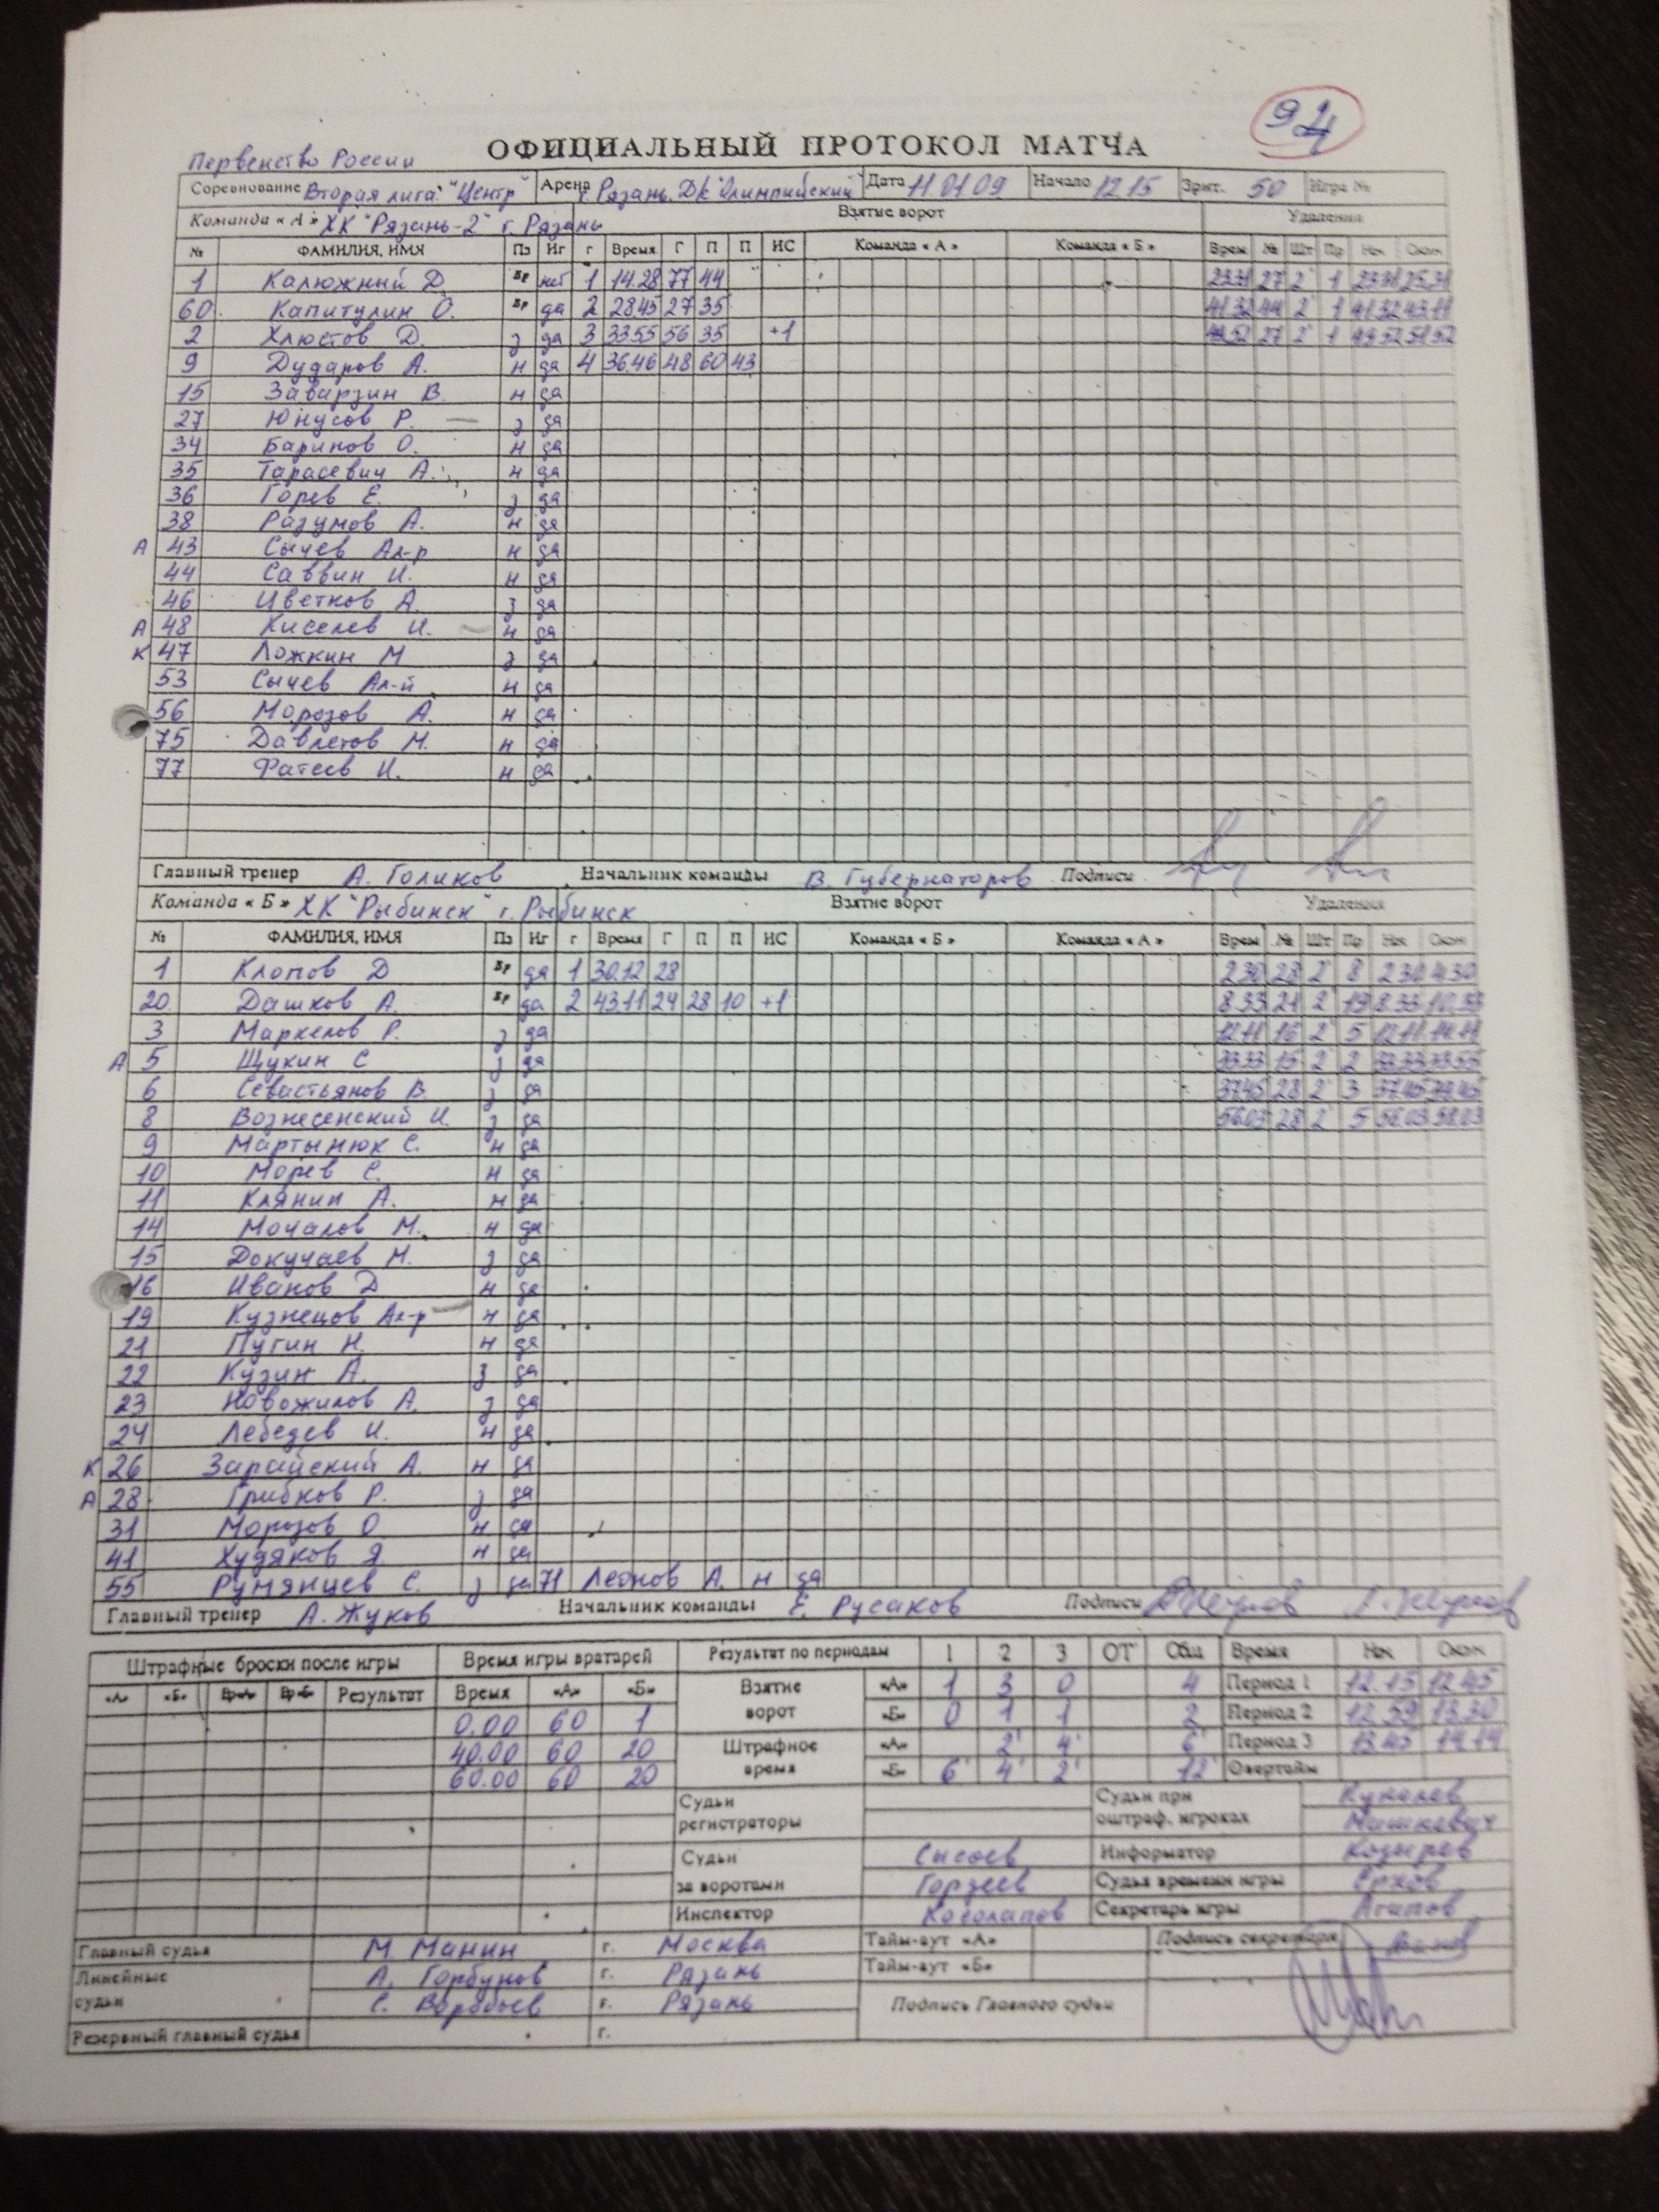 94
ОФИЦИАЛЬНЫЙ ПРОТОКОЛ МАТЧА
Первенство России
Соревнование Вторая лига "Центр" Арена г. Рязань, ДС "Олимпийский" Дата 11.01.09 Начало 12.15 Зрит. 50 Игра №
Команда «А» ХК "Рязань-2" г. Рязань Взятие ворот Удаления
№ ФАМИЛИЯ, ИМЯ Пз Иг г Время Г П П ИС Команда «А» Команда «Б» Врем № Шт Пр Нач Окон
1 Калюжный Д. Вр нет 1 14.28 77 44 23.31 27 2' 1 23.31 25.31
60 Капитулин О. Вр да 2 28.45 27 35 41.32 44 2' 1 41.32 43.11
2 Хлюстов Д. з да 3 33.55 56 35 +1 49.52 27 2' 1 49.52 51.52
9 Дударов А. н да 4 36.46 48 60 43
15 Заварзин В. н да
27 Юнусов Р. з да
34 Баринов О. н да
35 Тарасевич А. н да
36 Горев Е. з да
38 Разумов А. н да
А 43 Сычев Ал-р н да
44 Саввин И. н да
46 Цветков А. з да
А 48 Киселев И. н да
К 47 Ложкин М з да
53 Сычев Ал-й н да
56 Морозов А. н да
75 Давлетов М. н да
77 Фатеев И. н да
Главный тренер А. Голиков Начальник команды В. Губернаторов Подписи
Команда «Б» ХК "Рыбинск" г. Рыбинск Взятие ворот Удаления
№ ФАМИЛИЯ, ИМЯ Пз Иг г Время Г П П ИС Команда «Б» Команда «А» Врем № Шт Пр Нач Окон
1 Клопов Д Вр да 1 30.12 28 2.30 28 2' 8 2.30 4.30
20 Дашков А. Вр да 2 43.11 24 28 10 +1 8.33 21 2' 19 8.33 10.33
3 Маркелов Р. з да 12.11 16 2' 5 12.11 14.11
А 5 Щукин С з да 33.33 15 2' 2 33.33 33.55
6 Севастьянов В. з да 37.45 28 2' 3 37.45 39.45
8 Вознесенский И. з да 56.03 28 2' 5 56.03 58.03
9 Мартынюк С. н да
10 Морев С. н да
11 Клянин А. н да
14 Мочалов М. н да
15 Докучаев Н. з да
16 Иванов Д н да
19 Кузнецов Ал-р н да
21 Пугин Н. н да
22 Кузин А. з да
23 Новожилов А. з да
24 Лебедев И. н да
К 26 Зарайский А. н да
А 28 Грибков Р. з да
31 Морозов О н да
41 Худяков Я. н да
55 Румянцев С. з да 71 Леонов А. н да
Главный тренер А. Жуков Начальник команды Е. Русаков Подписи
Штрафные броски после игры Время игры вратарей Результат по периодам 1 2 3 ОТ Общ Время Нач Окон
«А» «Б» Вр-А Вр-Б Результат Время «А» «Б» Взятие ворот «А» 1 3 0 4 Период 1 12.15 12.45
0.00 60 1 «Б» 0 1 1 2 Период 2 12.59 13.30
40.00 60 20 Штрафное время «А» 2' 4' 6' Период 3 13.45 14.19
60.00 60 20 «Б» 6' 4' 2' 12' Овертайм
Судьи регистраторы Судьи при оштраф. игроках Кукалев
Машкевич
Судьи за воротами Сысоев Информатор Козырев
Гордеев Судья времени игры Ерхов
Инспектор Косолапов Секретарь игры Агапов
Главный судья М. Манин г. Москва Тайм-аут «А» Подпись секретаря
Линейные судьи А. Горбунов г. Рязань Тайм-аут «Б»
С. Воробьев г. Рязань Подпись Главного судьи
Резервный главный судья г.